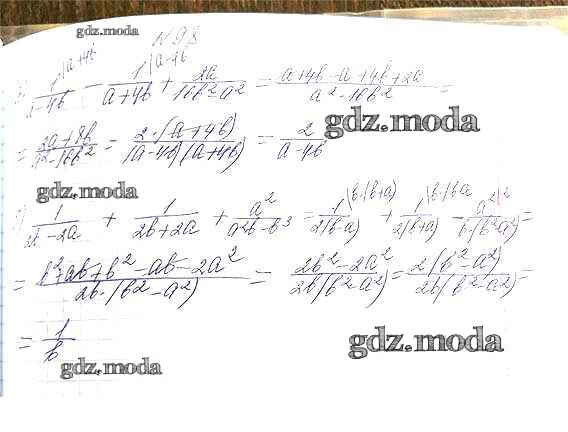 gdz.moda
N98
1/(a-4b) |a+4b - 1/(a+4b) |a-4b + 2a/(16b²-a²) = (a+4b-a+4b+2a)/(a²-16b²) =
gdz.moda
= (2a+8b)/(a²-16b²) = (2·(a+4b))/((a-4b)(a+4b)) = 2/(a-4b)
gdz.moda
1/(2b-2a) + 1/(2b+2a) + a²/(a²b-b³) = 1/(2(b-a)) |b·(b+a) + 1/(2(b+a)) - a²/(b·(b²-a²)) |2 =
= (b²+ab+b²-ab-2a²)/(2b·(b²-a²)) = (2b²-2a²)/(2b(b²-a²)) = (2(b²-a²))/(2b(b²-a²)) =
= 1/b
gdz.moda
gdz.moda